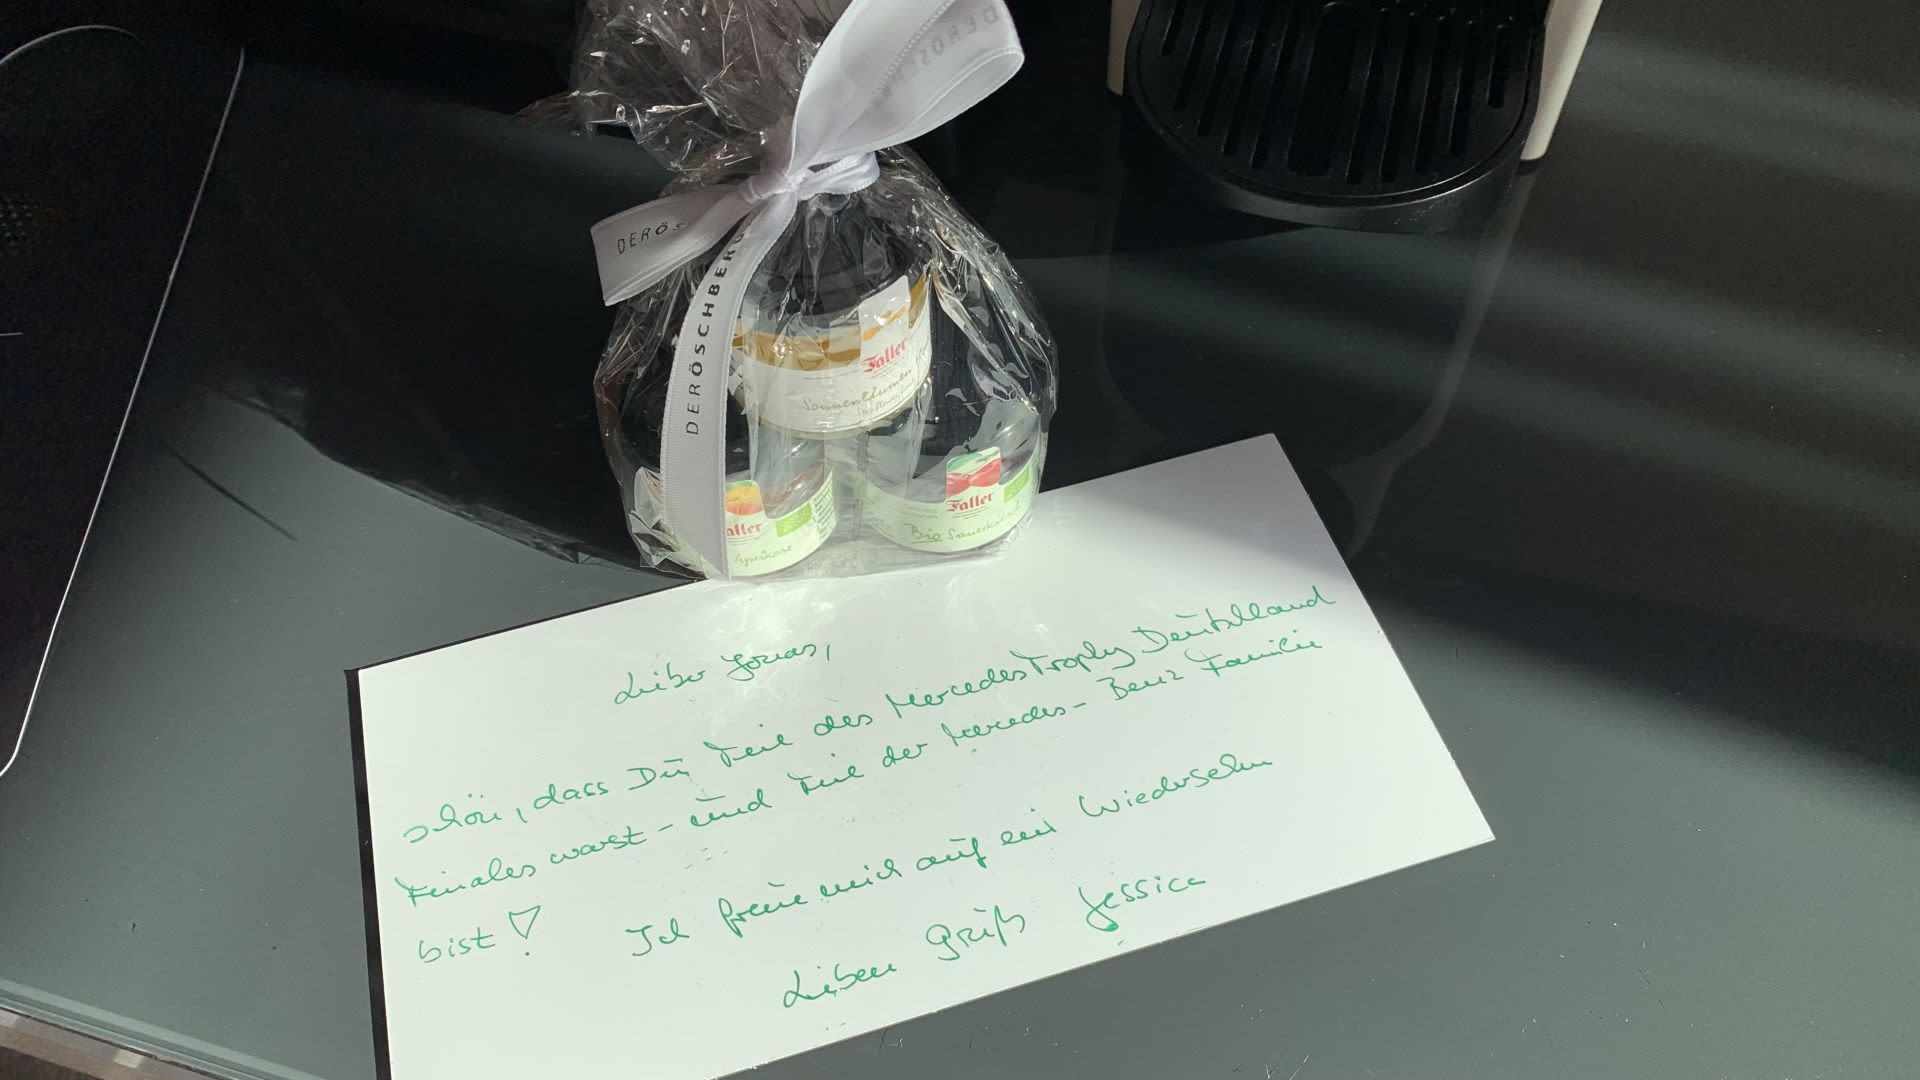 DERÖSCHBERG
DERÖS
DERÖSCHBERG
Faller
Sonnenblumen
Faller
Aprikose
Faller
Bio Sauerkirsch
Lieber Jonas,
schön, dass Du Teil des MercedesTrophy Deutschland
Finales warst - und Teil der Mercedes-Benz Familie
bist! Ich freue mich auf ein Wiedersehen
Lieben Gruß Jessica